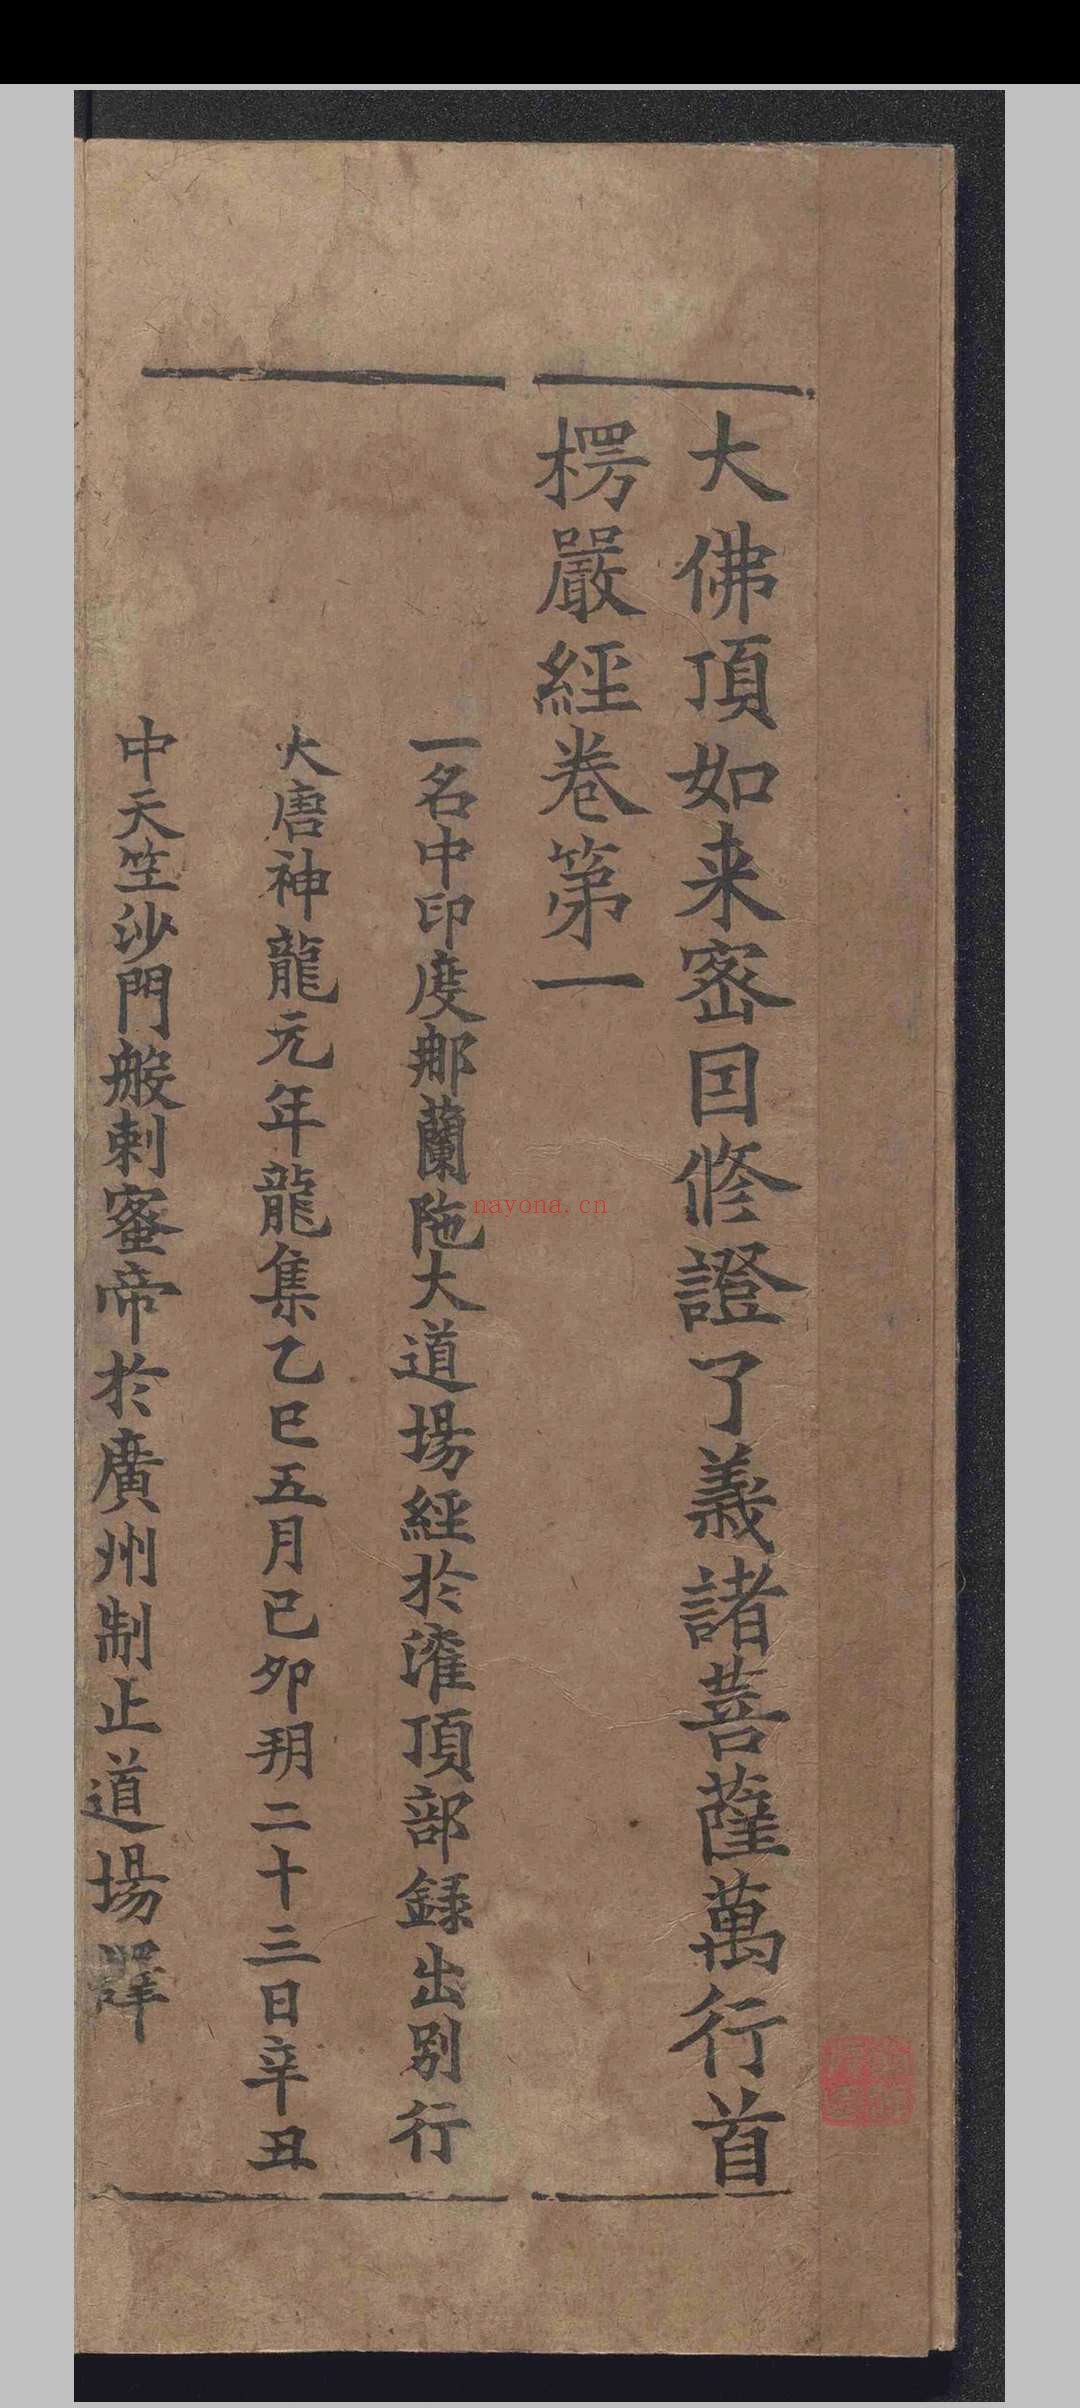 大佛頂如来宻囙修證了義諸菩薩萬行首
楞嚴經卷第一
一名中印度那蘭陁大道場經於灌頂部録出別行
大唐神龍元年龍集乙巳五月己卯朔二十三日辛丑
中天竺沙門般剌蜜帝於廣州制止道場譯
nayona.cn